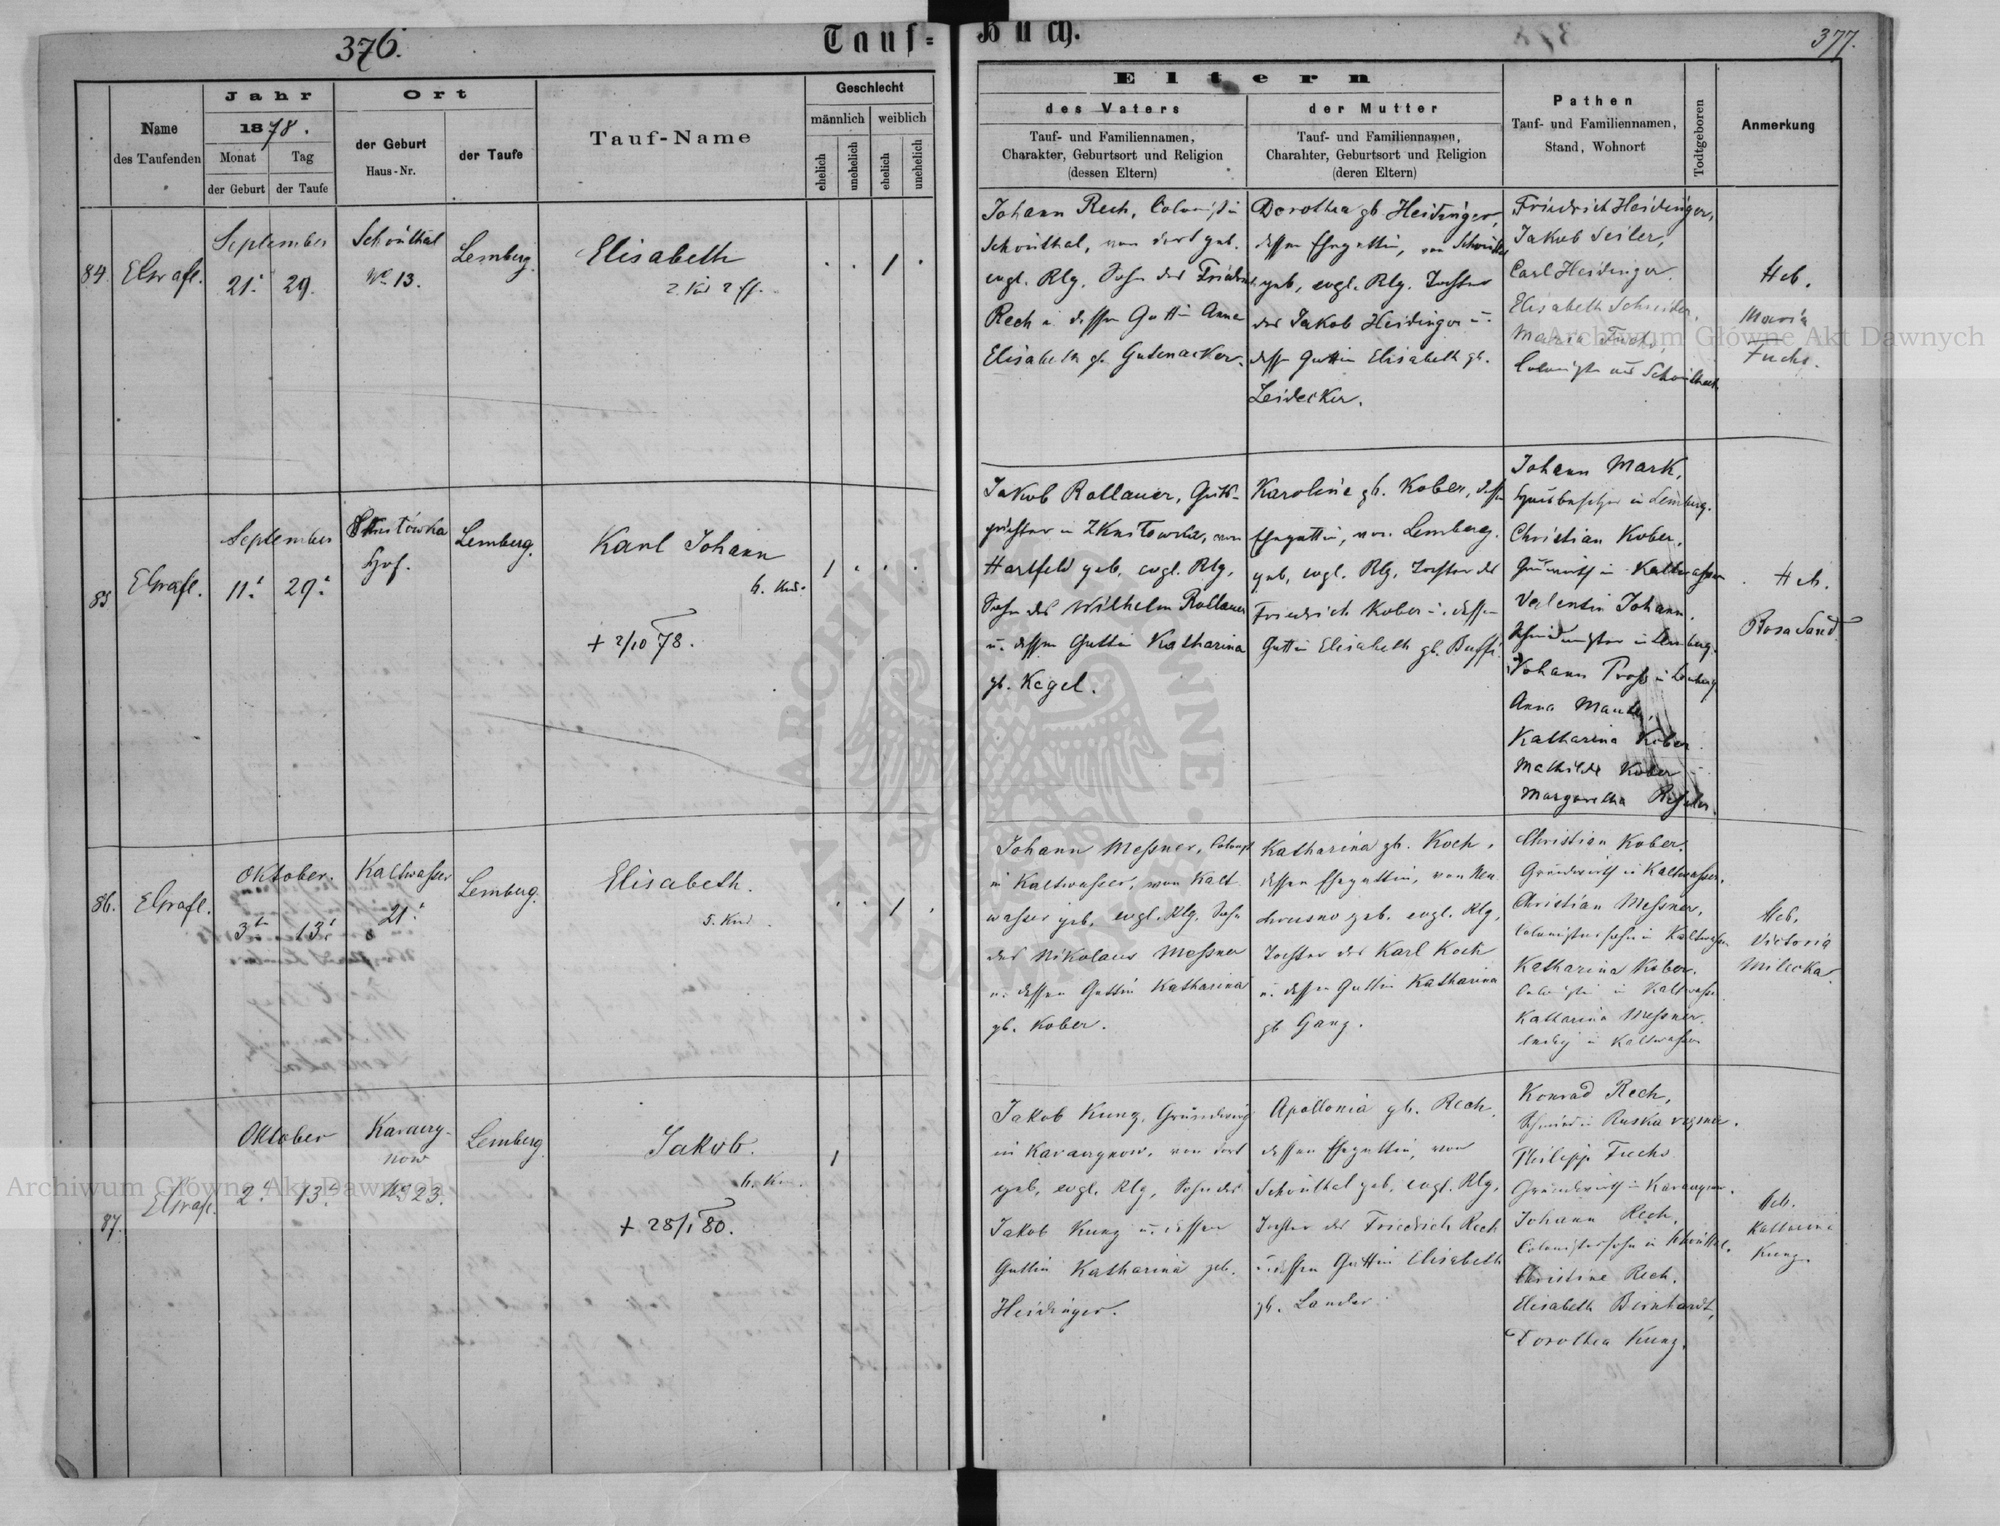 376.
Tauf=
Name
des Taufenden
Jahr
1878.
Monat
Tag
der Geburt
der Taufe
Ort
der Geburt
Haus-Nr.
der Taufe
Tauf-Name
Geschlecht
männlich
weiblich
ehelich
unehelich
ehelich
unehelich
84.
September
21.
29.
Schönthal
No 13.
Lemberg.
Elisabeth
85
September
11.
29.
Hof.
Lemberg.
Karl Johann
6. Kind.
+ 2/10 78.
86.
Oktober.
3
13.
Kaltwasser
21.
Lemberg.
Elisabeth.
5. Kind
87.
Oktober
2.
13.
No 23.
Lemberg
Jakob.
6. Kin.
+ 28/1 80.
Buch.
377.
Eltern
des Vaters
Tauf- und Familiennamen,
Charakter, Geburtsort und Religion
(dessen Eltern)
der Mutter
Tauf- und Familiennamen,
Charahter, Geburtsort und Religion
(deren Eltern)
Pathen
Tauf- und Familiennamen,
Stand, Wohnort
Todtgeboren
Anmerkung
Johann Rech, Colonist in
Schönthal, von dort geb.
evgl. Rlg. Sohn des Friedrich
Rech u. dessen Gattin Anna
Elisabeth gb. Gutenacker.
Dorothea gb Heidinger,
dessen Ehegattin, von Schönthal
geb, evgl. Rlg. Tochter
des Jakob Heidinger u.
dessen Gattin Elisabeth gb.
Leidecker.
Friedrich Heidinger,
Jakob Seiler,
Carl Heidinger
Elisabeth Schneider,
Maria Fuchs,
Colonisten aus Schönthal
Heb.
Maria
Fuchs.
Jakob Rollauer, Guts-
pächter in von
Hartfeld geb, evgl. Rlg,
Sohn des Wilhelm Rollauer
u. dessen Gattin Katharina
gb. Kegel.
Karoline gb. Kober, dessen
Ehegattin, von Lemberg
geb, evgl. Rlg, Tochter des
Friedrich Kober u. dessen
Gattin Elisabeth gb.
Johann Mark,
Hausbesitzer in Lemberg.
Christian Kober,
Grundwirth in Kaltwasser
Valentin Johann,
Schmidmeister in Lemberg.
Johann in Lemberg
Anna
Katharina Kober
Mathilde Kober
Margaretha
Heb.
Rosa Sand
Johann Meßner, Colonist
in Kaltwasser, von Kalt
wasser geb, evgl. Rlg. Sohn
des Nikolaus Meßner
u. dessen Gattin Katharina
gb. Kober.
Katharina gb. Koch,
dessen Ehegattin, von Neu
geb. evgl. Rlg,
Tochter des Karl Koch
u. dessen Gattin Katharina
gb Gang.
Christian Kober.
Grundwirth in Kaltwasser.
Christian Messner,
Colonistensohn in Kaltwasser
Katharina Kober.
in Kaltwasser
Katharina Messner.
ledig in Kaltwasser
Heb.
Victoria
Milecka
Jakob Kunz, Grundwirth
in von dort
geb, evgl. Rlg, Sohn des
Jakob Kunz u. dessen
Gattin Katharina geb.
Heidinger.
Apollonia gb. Rech
dessen Ehegattin, von
Schönthal geb, evgl. Rlg,
Tochter des Friedrich Rech
u. dessen Gattin Elisabeth
gb. Lander
Konrad Rech,
Schmied in Ruska
Philipp Fuchs
Grundwirth in
Johann Rech,
Colonistensohn in Schönthal.
Christine Rech.
Elisabeth Bernhardt,
Dorothea Kunz.
Heb.
Katharina
Kunz
Archiwum Główne Akt Dawnych
Archiwum Główne Akt Dawnych